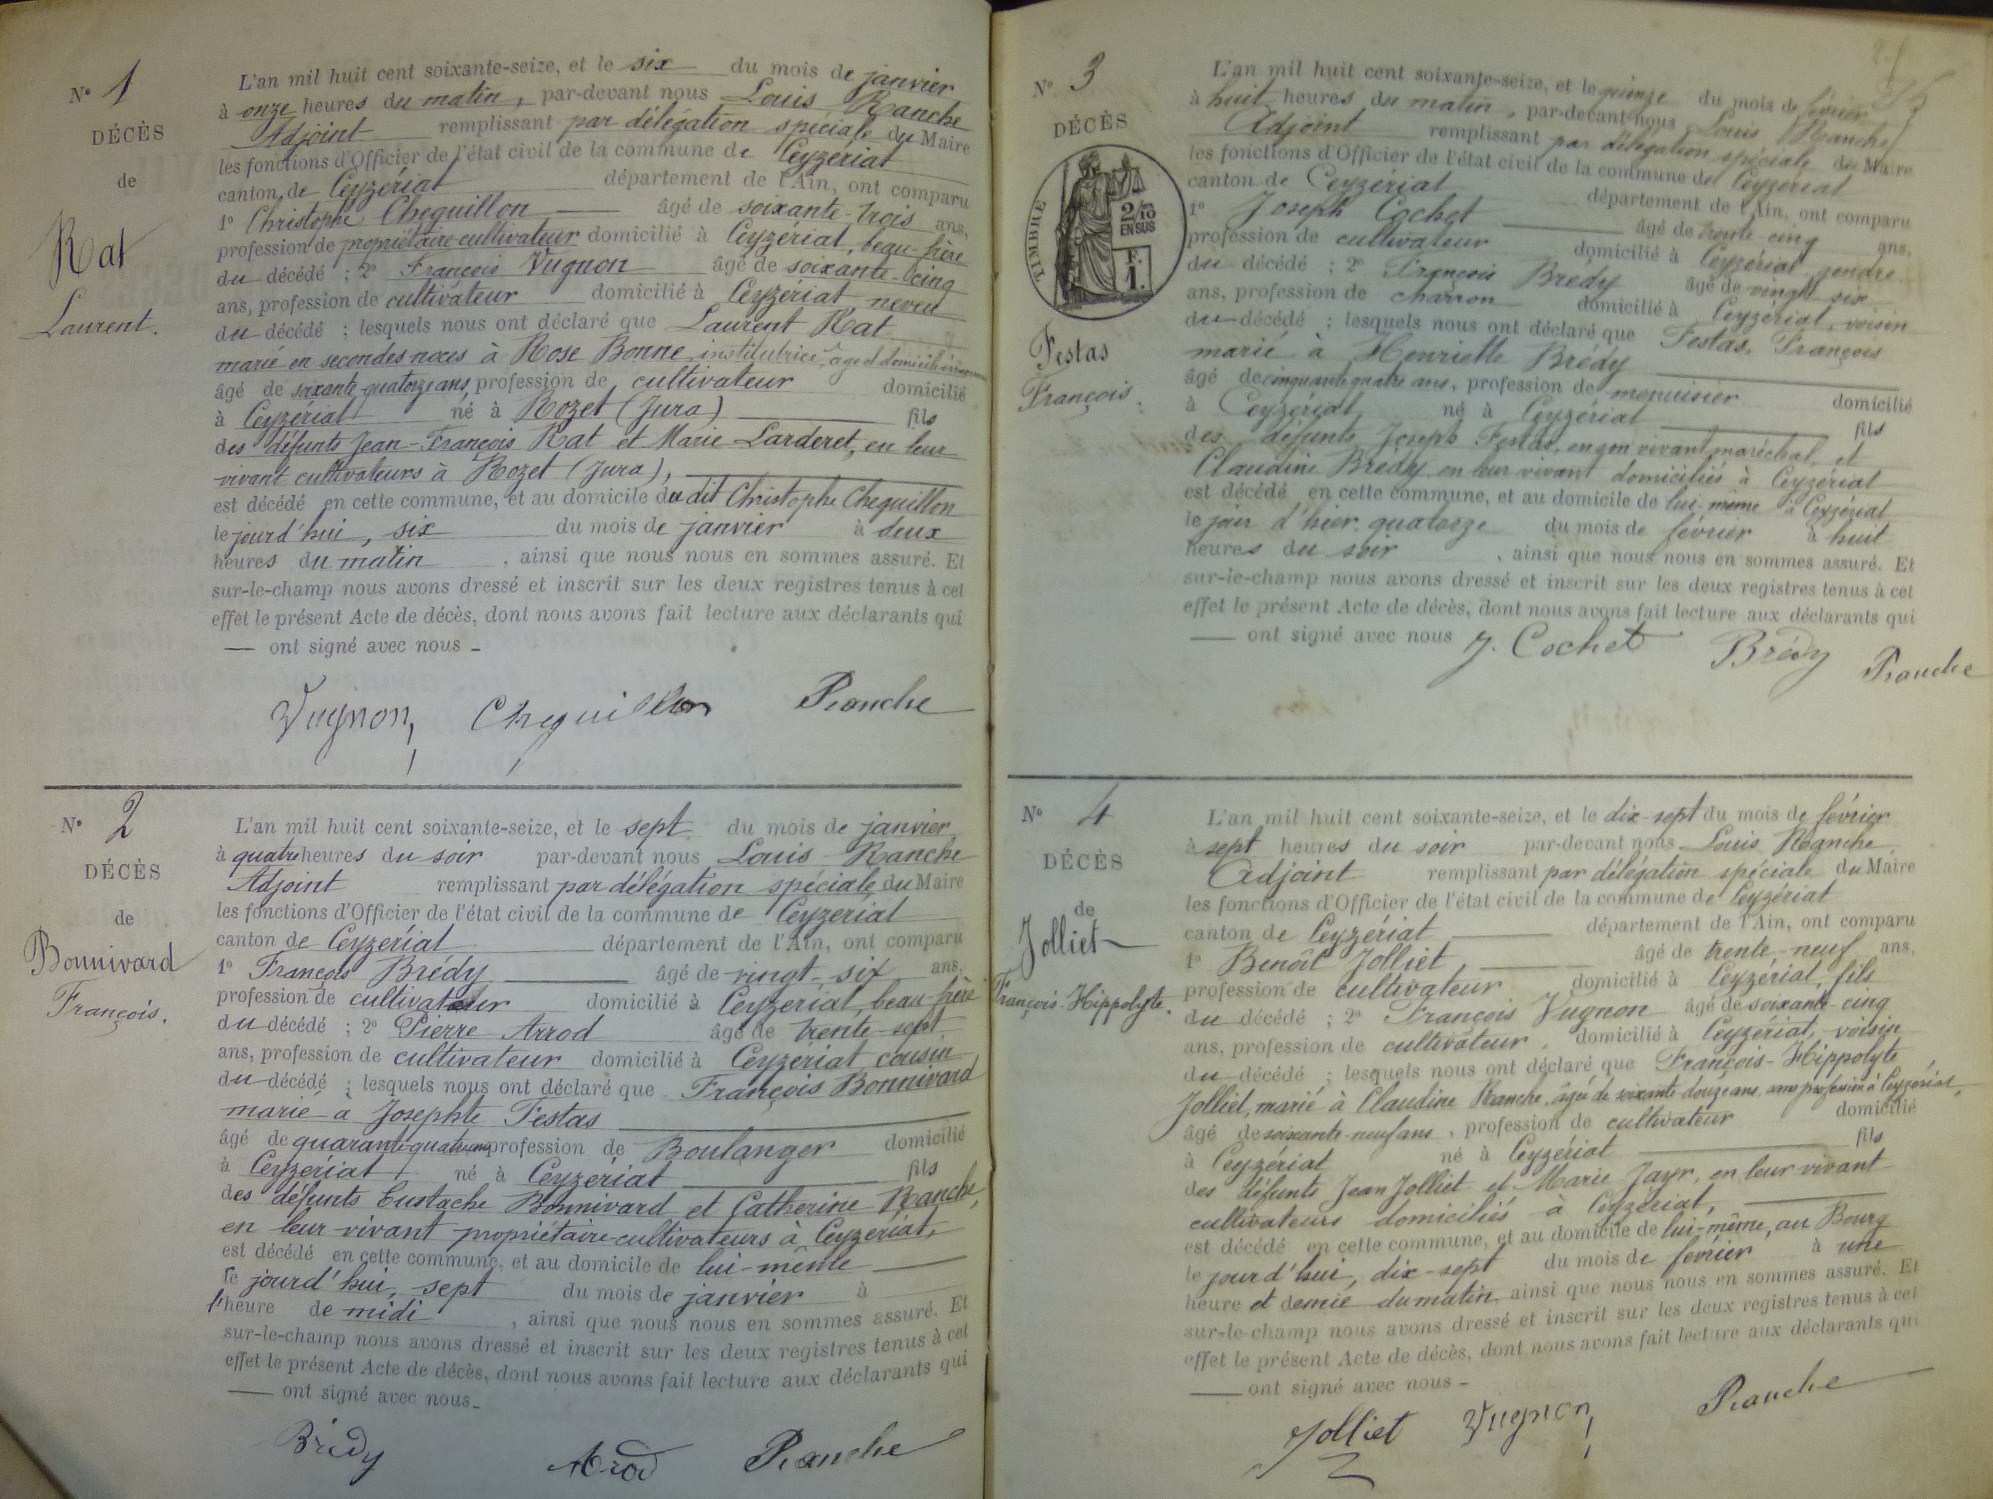 N° 1
DÉCÈS
de
Rat
Laurent.
L'an mil huit cent soixante-seize, et le six du mois de janvier
à onze heures du matin, par-devant nous Louis Ranche
Adjoint remplissant par délégation spéciale du Maire
les fonctions d'Officier de l'état civil de la commune de Ceyzériat
canton de Ceyzériat département de l'Ain, ont comparu
1° Christophe Chequillon âgé de soixante-trois ans,
profession de propriétaire-cultivateur domicilié à Ceyzériat, beau-frère
du décédé ; 2° François Vugnon âgé de soixante-cinq
ans, profession de cultivateur domicilié à Ceyzériat neveu
du décédé ; lesquels nous ont déclaré que Laurent Rat
marié en secondes noces à Rose Bonne, institutrice, âge et domicile
âgé de soixante-quatorze ans, profession de cultivateur domicilié
à Ceyzériat né à Rozet (Jura) fils
des défunts Jean-François Rat et Marie Larderet, en leur
vivant cultivateurs à Rozet (Jura),
est décédé en cette commune, et au domicile du dit Christophe Chequillon
le jourd'hui, six du mois de janvier à deux
heures du matin, ainsi que nous nous en sommes assuré. Et
sur-le-champ nous avons dressé et inscrit sur les deux registres tenus à cet
effet le présent Acte de décès, dont nous avons fait lecture aux déclarants qui
— ont signé avec nous -
Vugnon, Chequillon Ranche
N° 2
DÉCÈS
de
Bonnivard
François.
L'an mil huit cent soixante-seize, et le sept du mois de janvier,
à quatre heures du soir par-devant nous Louis Ranche
Adjoint remplissant par délégation spéciale du Maire
les fonctions d'Officier de l'état civil de la commune de Ceyzériat
canton de Ceyzériat département de l'Ain, ont comparu
1° François Brédy âgé de vingt-six ans,
profession de cultivateur domicilié à Ceyzériat, beau-frère
du décédé ; 2° Pierre Arrod âgé de trente-sept
ans, profession de cultivateur domicilié à Ceyzériat cousin
du décédé ; lesquels nous ont déclaré que François Bonnivard
marié à Josephte Festas
âgé de quarante-quatre ans profession de Boulanger domicilié
à Ceyzériat, né à Ceyzériat fils
des défunts Eustache Bonnivard et Catherine Ranche,
en leur vivant propriétaire-cultivateurs à Ceyzériat,
est décédé en cette commune, et au domicile de lui-même
le jourd'hui, sept du mois de janvier à
l'heure de midi, ainsi que nous nous en sommes assuré. Et
sur-le-champ nous avons dressé et inscrit sur les deux registres tenus à cet
effet le présent Acte de décès, dont nous avons fait lecture aux déclarants qui
— ont signé avec nous -
Brédy Arrod Ranche
N° 3
DÉCÈS
TIMBRE
2/10
EN SUS
F.
1.
Festas
François.
L'an mil huit cent soixante-seize, et le quinze du mois de février
à huit heures du matin, par-devant nous Louis Ranche
Adjoint remplissant par délégation spéciale du Maire
les fonctions d'Officier de l'état civil de la commune de Ceyzériat
canton de Ceyzériat département de l'Ain, ont comparu
1° Joseph Cochet âgé de trente-cinq ans,
profession de cultivateur domicilié à Ceyzériat gendre
du décédé ; 2° François Bredy âgé de vingt six
ans, profession de charron domicilié à Ceyzériat, voisin
du décédé ; lesquels nous ont déclaré que Festas, François
marié à Henriette Bredy
âgé de cinquante quatre ans, profession de menuisier domicilié
à Ceyzériat, né à Ceyzériat fils
des défunts Joseph Festas, en son vivant maréchal, et
Claudine Brédy en leur vivant domiciliés à Ceyzériat
est décédé en cette commune, et au domicile de lui-même à Ceyzériat
le jour d'hier, quatorze du mois de février à huit
heures du soir, ainsi que nous nous en sommes assuré. Et
sur-le-champ nous avons dressé et inscrit sur les deux registres tenus à cet
effet le présent Acte de décès, dont nous avons fait lecture aux déclarants qui
— ont signé avec nous J. Cochet Brédy Ranche
N° 4
DÉCÈS
de
Jolliet
François-Hippolyte.
L'an mil huit cent soixante-seize, et le dix-sept du mois de février
à sept heures du soir par-devant nous Louis Ranche,
Adjoint remplissant par délégation spéciale du Maire
les fonctions d'Officier de l'état civil de la commune de Ceyzériat
canton de Ceyzériat département de l'Ain, ont comparu
1° Benoît Jolliet, âgé de trente-neuf ans,
profession de cultivateur domicilié à Ceyzériat, fils
du décédé ; 2° François Vugnon âgé de soixante-cinq
ans, profession de cultivateur, domicilié à Ceyzériat, voisin
du décédé ; lesquels nous ont déclaré que François-Hippolyte
Jolliet, marié à Claudine Ranche, âgée de soixante-douze ans, sans profession à Ceyzériat,
âgé de soixante-neuf ans, profession de cultivateur domicilié
à Ceyzériat né à Ceyzériat fils
des défunts Jean Jolliet et Marie Jayr, en leur vivant
cultivateurs domiciliés à Ceyzériat,
est décédé en cette commune, et au domicile de lui-même, au Bourg
le jourd'hui, dix-sept du mois de février à une
heure et demie du matin ainsi que nous nous en sommes assuré. Et
sur-le-champ nous avons dressé et inscrit sur les deux registres tenus à cet
effet le présent Acte de décès, dont nous avons fait lecture aux déclarants qui
— ont signé avec nous -
Jolliet Vugnon, Ranche